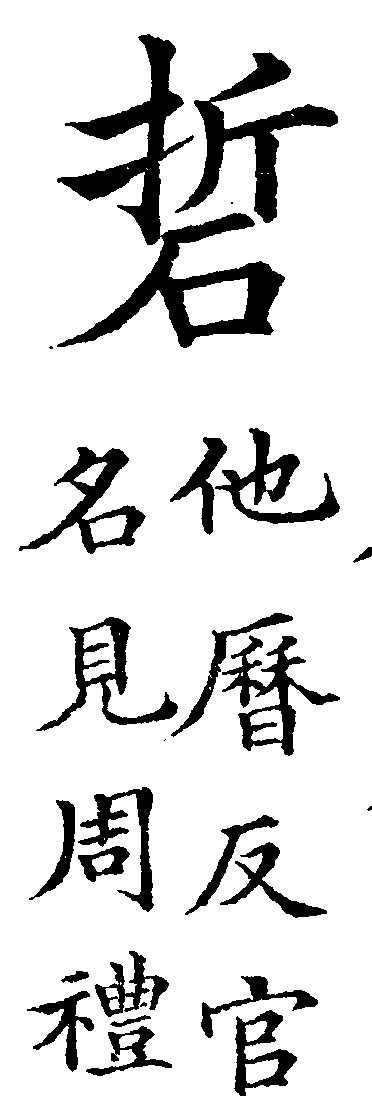 硩
他曆反官
名見周禮